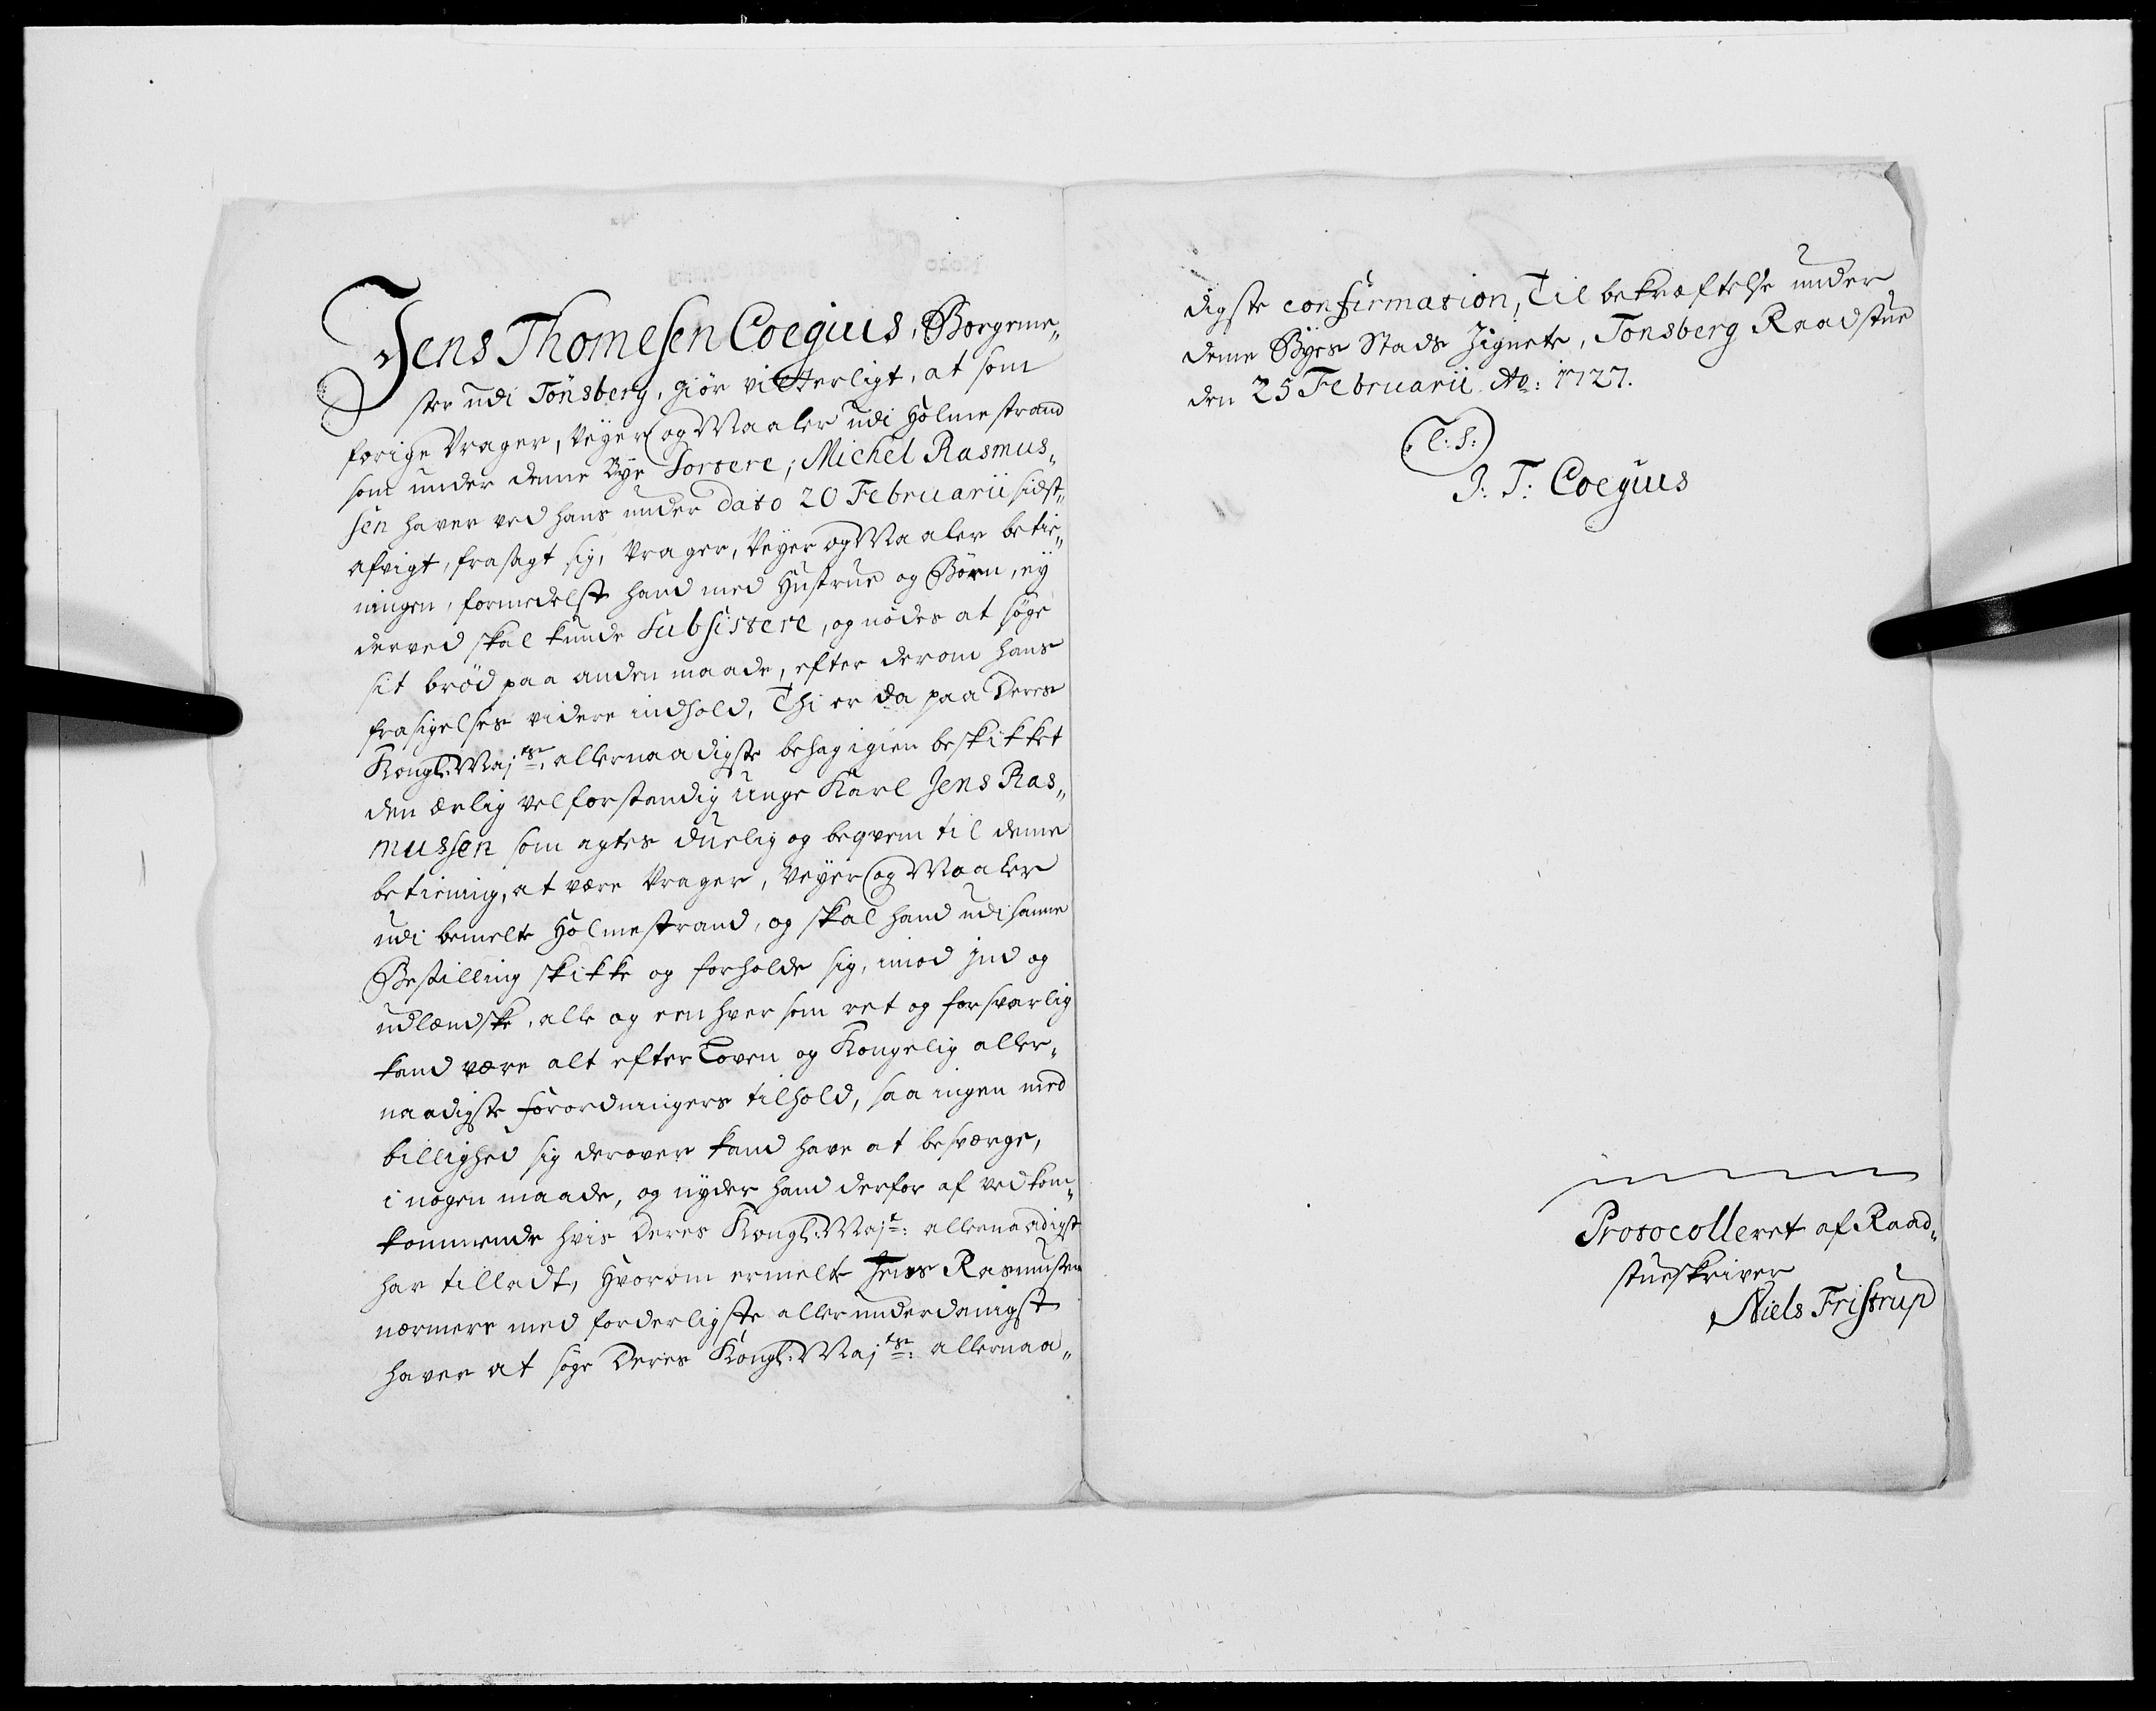 Jens Thomesen Coegius, Borgeme„
ster udi Tönsberg, giör vitterligt, at som
forige Vrager, Veyer og Maaler udi Holmestrand
som under denne Bye Sortere, Michel Rasmus„
sen haver ved hans under dato 20 Februarii sidst„
afvigt, frasagt sig, Vrager, Veyer og Maaler betie„
ningen, formedelst hand med Hustrue og Börn, ey
derved skal kunde Subsistere, og nödes at söge
sit bröd paa anden maade, efter derom hans
frasigelses videre indhold, Thi er da paa Deres
Kongl: Maj.ts: allernaadigste behag igien beskikket
den ærlig velforstandig unge Karl Jens Ras„
mussen som agtes duelig og beqvem til denne
betiening, at være Vrager, Veyer og Maaler
udi bemelte Holmestrand, og skal hand udi samme
Bestilling skikke og forholde sig, imod ind og
udlændske, alle og een hver som ret og forsvarlig
kand være alt efter Loven og Kongelig aller„
naadigste forordningers tilhold, saa ingen med
billighed sig derover kand have at besværge,
i nogen maade, og nyder hand derfor af vedkom„
kommende hvis Deres Kongl: Maj.t: allernaadigst
har tilladt, Hvorom ermelte Jens Rasmussen
nærmere med forderligste allerunderdanigst
haver at söge Deres Kongl: Maj.ts: allernaa„
digste confirmation, Til bekræftelse under
denne Byes Stads Zignete, Tonsberg Raadstue
den 25 Februarii Ao: 1727.
(L: S:)
J: T: Coegius
Protocolleret af Raad„
stueskriver
Niels Fristrup